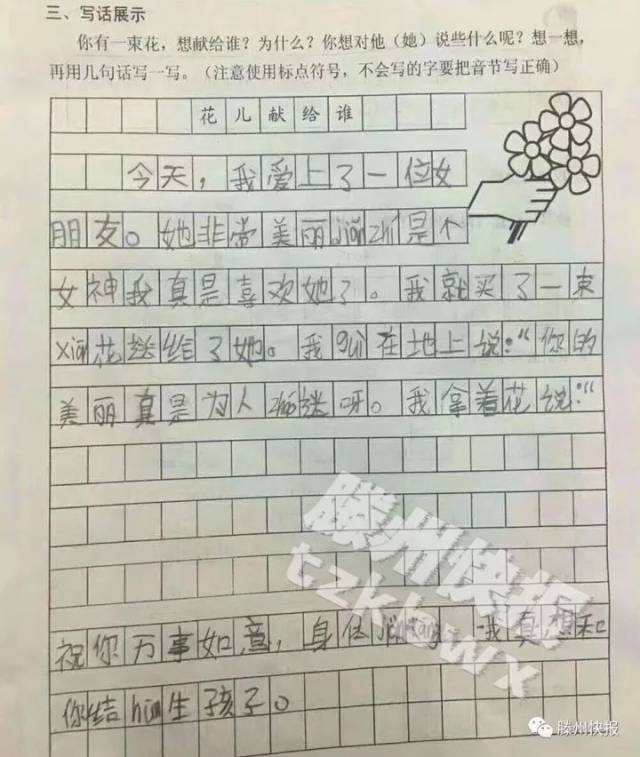 三、写话展示
你有一束花，想献给谁？为什么？你想对他（她）说些什么呢？想一想，
再用几句话写一写。（注意使用标点符号，不会写的字要把音节写正确）
花儿献给谁
今天，我爱上了一位女
朋友。她非常美丽jiǎnzhí是个
女神我真是喜欢她了。我就买了一束
xiān花送给了她。我guì在地上说：“你的
美丽真是为人zháo迷呀。我拿着花说：“
祝你万事如意，身体jiànkāng，我真想和
你结hūn生孩子。
滕州快报
tzkbwx
滕州快报